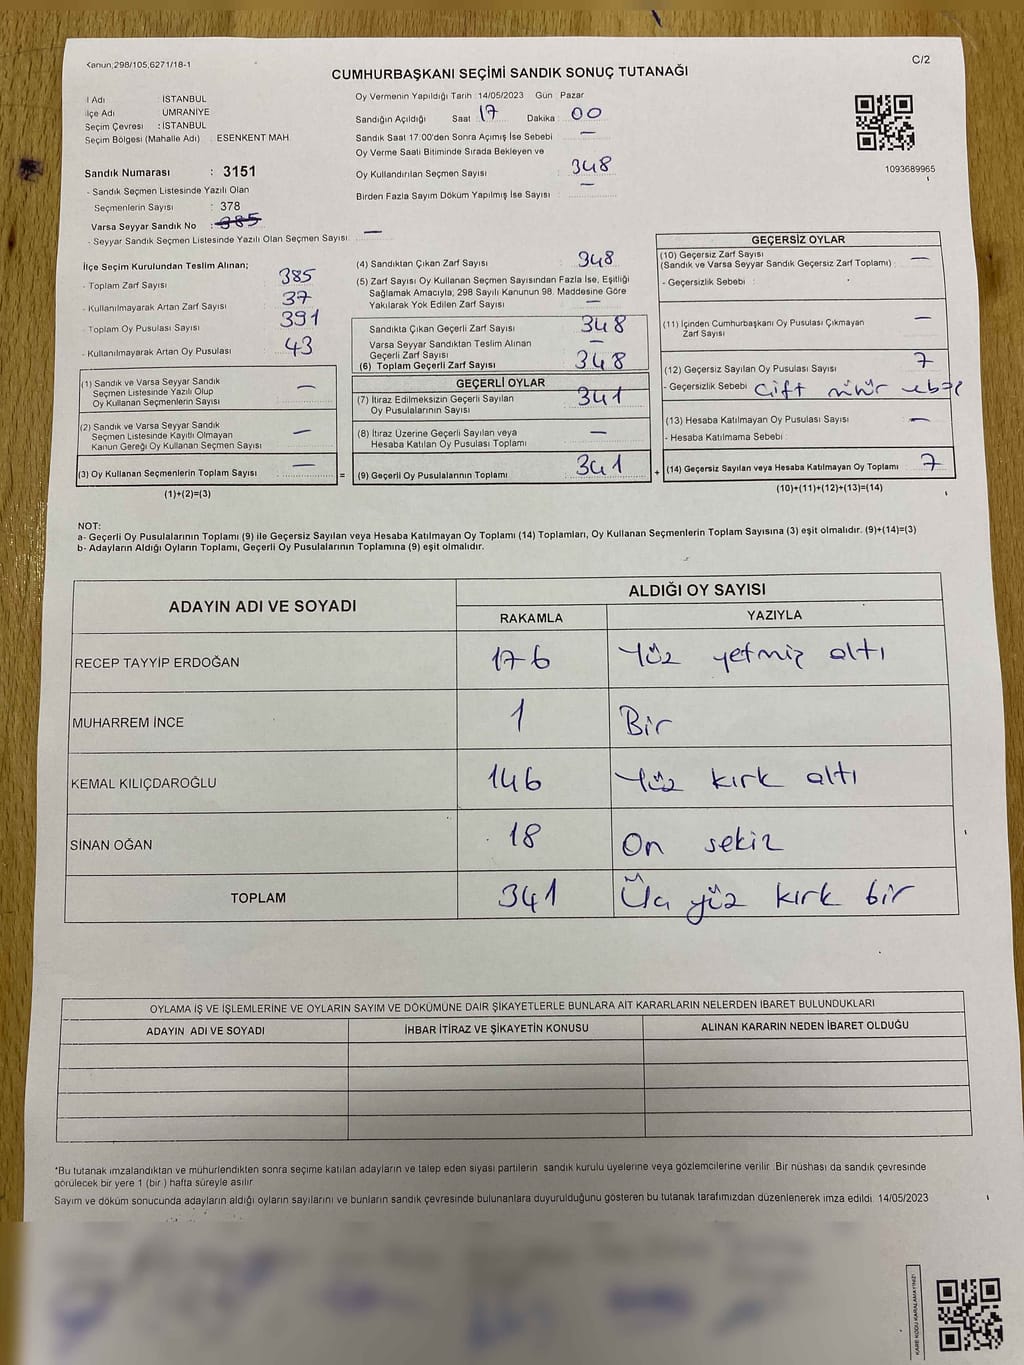 Kanun,298/105,6271/18-1
C/2
CUMHURBAŞKANI SEÇİMİ SANDIK SONUÇ TUTANAĞI
İ Adı İSTANBUL
İlçe Adı ÜMRANİYE
Seçim Çevresi : İSTANBUL
Seçim Bölgesi (Mahalle Adı) : ESENKENT MAH.
Sandık Numarası : 3151
- Sandık Seçmen Listesinde Yazılı Olan
Seçmenlerin Sayısı : 378
Varsa Seyyar Sandık No : 385
- Seyyar Sandık Seçmen Listesinde Yazılı Olan Seçmen Sayısı —
Oy Vermenin Yapıldığı Tarih : 14/05/2023 Gün : Pazar
Sandığın Açıldığı Saat 17 Dakika 00
Sandık Saat 17:00'den Sonra Açımış İse Sebebi —
Oy Verme Saati Bitiminde Sırada Bekleyen ve
Oy Kullandırılan Seçmen Sayısı : 348
Birden Fazla Sayım Döküm Yapılmış İse Sayısı : —
1093689965
İlçe Seçim Kurulundan Teslim Alınan;
- Toplam Zarf Sayısı 385
- Kullanılmayarak Artan Zarf Sayısı 37
- Toplam Oy Pusulası Sayısı 391
- Kullanılmayarak Artan Oy Pusulası 43
(1) Sandık ve Varsa Seyyar Sandık
Seçmen Listesinde Yazılı Olup
Oy Kullanan Seçmenlerin Sayısı —
(2) Sandık ve Varsa Seyyar Sandık
Seçmen Listesinde Kayıtlı Olmayan
Kanun Gereği Oy Kullanan Seçmen Sayısı —
(3) Oy Kullanan Seçmenlerin Toplam Sayısı —
(1)+(2)=(3)
=
(4) Sandıktan Çıkan Zarf Sayısı 348
(5) Zarf Sayısı Oy Kullanan Seçmen Sayısından Fazla İse, Eşitliği
Sağlamak Amacıyla, 298 Sayılı Kanunun 98. Maddesine Göre
Yakılarak Yok Edilen Zarf Sayısı —
Sandıkta Çıkan Geçerli Zarf Sayısı 348
Varsa Seyyar Sandıktan Teslim Alınan
Geçerli Zarf Sayısı —
(6) Toplam Geçerli Zarf Sayısı 348
GEÇERLİ OYLAR
(7) İtiraz Edilmeksizin Geçerli Sayılan
Oy Pusulalarının Sayısı 341
(8) İtiraz Üzerine Geçerli Sayılan veya
Hesaba Katılan Oy Pusulası Toplamı —
(9) Geçerli Oy Pusulalarının Toplamı 341
+
GEÇERSİZ OYLAR
(10) Geçersiz Zarf Sayısı
(Sandık ve Varsa Seyyar Sandık Geçersiz Zarf Toplamı) : —
- Geçersizlik Sebebi :
(11) İçinden Cumhurbaşkanı Oy Pusulası Çıkmayan
Zarf Sayısı —
(12) Geçersiz Sayılan Oy Pusulası Sayısı 7
- Geçersizlik Sebebi Çift
(13) Hesaba Katılmayan Oy Pusulası Sayısı —
- Hesaba Katılmama Sebebi
(14) Geçersiz Sayılan veya Hesaba Katılmayan Oy Toplamı 7
(10)+(11)+(12)+(13)=(14)
NOT:
a- Geçerli Oy Pusulalarının Toplamı (9) ile Geçersiz Sayılan veya Hesaba Katılmayan Oy Toplamı (14) Toplamları, Oy Kullanan Seçmenlerin Toplam Sayısına (3) eşit olmalıdır. (9)+(14)=(3)
b- Adayların Aldığı Oyların Toplamı, Geçerli Oy Pusulalarının Toplamına (9) eşit olmalıdır.
ADAYIN ADI VE SOYADI
ALDIĞI OY SAYISI
RAKAMLA YAZIYLA
RECEP TAYYİP ERDOĞAN 176 Yüz yetmiş altı
MUHARREM İNCE 1 Bir
KEMAL KILIÇDAROĞLU 146 Yüz kırk altı
SİNAN OĞAN 18 On sekiz
TOPLAM 341 Üç yüz kırk bir
OYLAMA İŞ VE İŞLEMLERİNE VE OYLARIN SAYIM VE DÖKÜMÜNE DAİR ŞİKAYETLERLE BUNLARA AİT KARARLARIN NELERDEN İBARET BULUNDUKLARI
ADAYIN ADI VE SOYADI İHBAR İTİRAZ VE ŞİKAYETİN KONUSU ALINAN KARARIN NEDEN İBARET OLDUĞU
*Bu tutanak imzalandıktan ve mühürlendikten sonra seçime katılan adayların ve talep eden siyasi partilerin sandık kurulu üyelerine veya gözlemcilerine verilir. Bir nüshası da sandık çevresinde
görülecek bir yere 1 (bir ) hafta süreyle asılır
Sayım ve döküm sonucunda adayların aldığı oyların sayılarını ve bunların sandık çevresinde bulunanlara duyurulduğunu gösteren bu tutanak tarafımızdan düzenlenerek imza edildi. 14/05/2023
KARE KODU KARALAMAYINIZ!